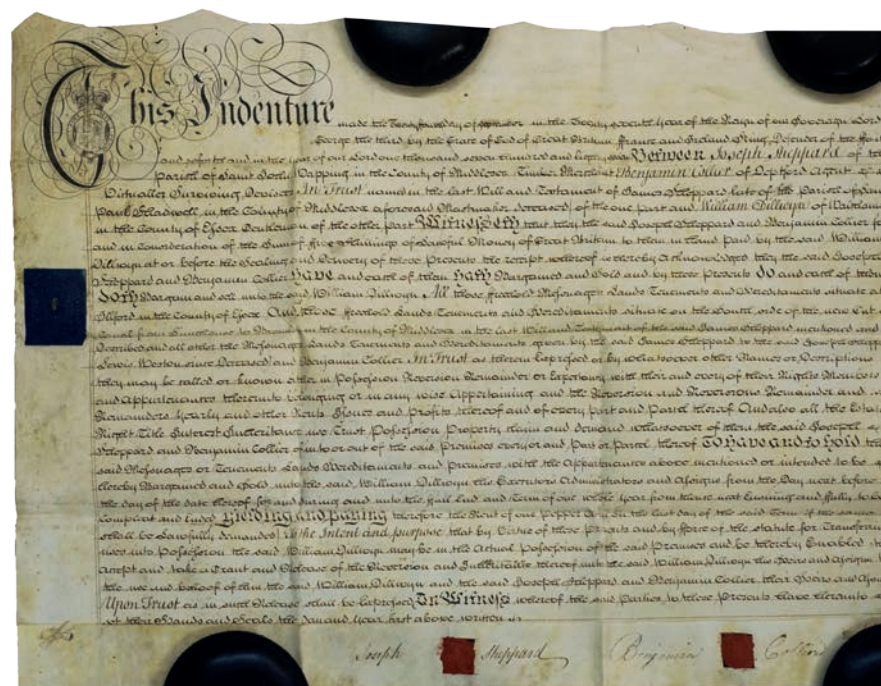 This Indenture made the Twenty day of September in the Twenty seventh Year of the Reign of our Sovereign Lord
George the third by the Grace of God of Great Britain ffrance and Ireland King, Defender of the
and soforth and in the Year of our Lord one thousand seven hundred and Eighty Between Joseph Sheppard of the
Parish of Saint John Wapping in the County of Middlesex Timber Merchant Benjamin Collier of Deptford Agent
Victualler Surviving Devisees In Trust named in the last Will and Testament of James Sheppard late of the Parish of Saint
Paul Shadwell in the County of Middlesex aforesaid Mastmaker deceased of the one part and William Dillwyn of
in the County of Essex Gentleman of the other part Witnesseth that they the said Joseph Sheppard and Benjamin Collier
and in Consideration of the Sum of ffive Shillings of Lawful Money of Great Britain to them in Hand Paid by the said William
Dillwyn at or before the Sealing and Delivery of these Presents the receipt whereof is hereby Acknowledged they the said Joseph
Sheppard and Benjamin Collier Have and each of them Hath Bargained and Sold and by these Presents Do and each of them
Doth Bargain and sell unto the said William Dillwyn All those ffreehold Messuages Lands Tenements and Hereditaments situate at
Ilford in the County of Essex And those ffreehold Lands Tenements and Hereditaments situate on the South side of the new Cut
Canal from Limehouse to in the County of Middlesex in the last Will and Testament of the said James Sheppard mentioned and
Described and all other the Messuages Lands Tenements and Hereditaments given by the said James Sheppard to the said Joseph
Lewis Weston since Deceased and Benjamin Collier In Trust as therein Expressed or by whatsoever other Names or Descriptions
they may be called or known either in Possession Reversion Remainder or Expectancy with their and every of their Rights Members
and Appurtenances thereunto belonging or in any wise Appertaining and the Reversion and Reversions Remainder and
Remainders Yearly and other Rents Issues and Profits thereof and of every Part and Parcel thereof And also all the Estate
Right Title Interest Inheritance use Trust Possession Property claim and demand whatsoever of them the said Joseph
Sheppard and Benjamin Collier of into or out of the said Premises every or any Part or Parcel thereof To Have and to Hold the
said Messuages or Tenements Lands Hereditaments and Premises with the Appurtenances above mentioned or intended to be
hereby Bargained and Sold unto the said William Dillwyn his Executors Administrators and Assigns from the Day next before
the day of the date hereof for and during and unto the full End and Term of one whole Year from thence next Ensuing and fully to be
Compleat and Ended Yielding and Paying therefore the Rent of one Pepper Corn on the last day of the said Term if the same
shall be Lawfully demanded To the Intent and purpose that by Virtue of these Presents and by fforce of the statute for Transferring
uses into Possession the said William Dillwyn may be in the Actual Possession of the said Premises and be thereby Enabled to
Accept and take a Grant and Release of the Reversion and Inheritance thereof unto the said William Dillwyn his Heirs and Assigns
the use and behoof of him the said William Dillwyn and the said Joseph Sheppard and Benjamin Collier their Heirs and Assigns
Upon Trust as in such Release shall be Expressed In Witness whereof the said Parties to these Presents have hereunto
set their Hands and Seals the Day and Year first above written
Joseph Sheppard Benjamin Collier